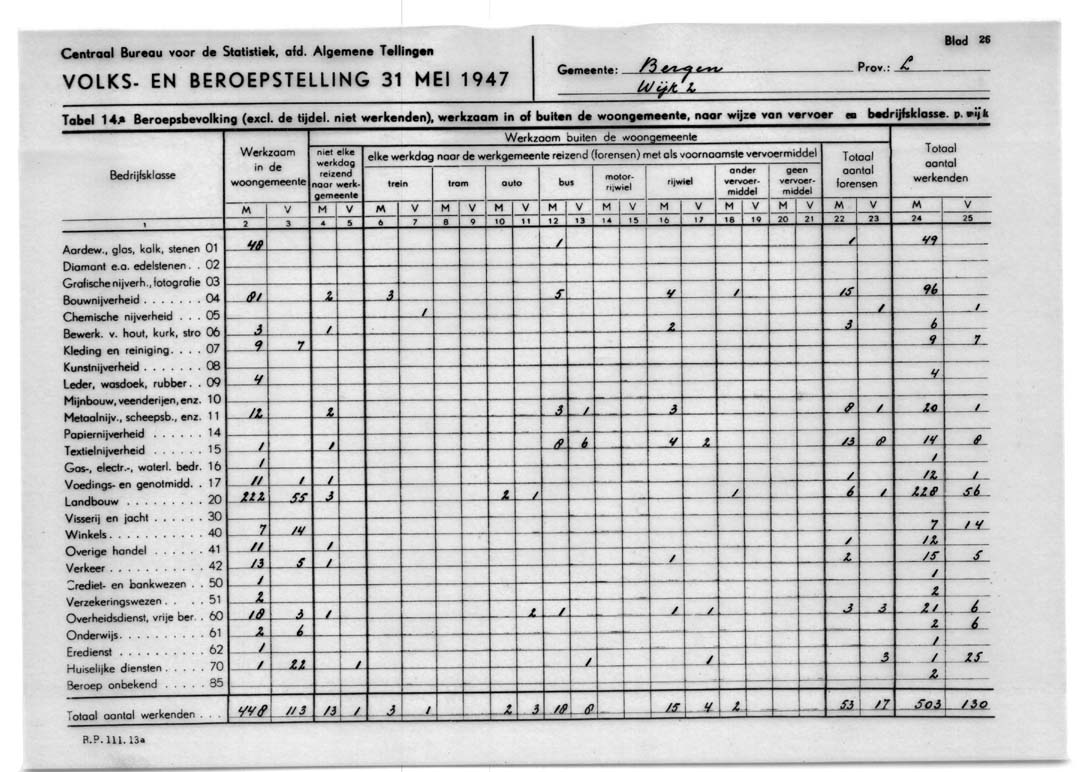 Blad 26
Centraal Bureau voor de Statistiek, afd. Algemene Tellingen
VOLKS- EN BEROEPSTELLING 31 MEI 1947
Gemeente: Bergen Prov.: L
Wijk 2
Tabel 14.a Beroepsbevolking (excl. de tijdel. niet werkenden), werkzaam in of buiten de woongemeente, naar wijze van vervoer en bedrijfsklasse. p. wijk
Bedrijfsklasse
Werkzaam in de woongemeente
Werkzaam buiten de woongemeente
niet elke werkdag reizend naar werk-gemeente
elke werkdag naar de werkgemeente reizend (forensen) met als voornaamste vervoermiddel
trein tram auto bus motor-rijwiel rijwiel ander vervoer-middel geen vervoer-middel
Totaal aantal forensen
Totaal aantal werkenden
M V M V M V M V M V M V M V M V M V M V M V M V
1 2 3 4 5 6 7 8 9 10 11 12 13 14 15 16 17 18 19 20 21 22 23 24 25
Aardew., glas, kalk, stenen 01 48 1 1 49
Diamant e.a. edelstenen . . 02
Grafische nijverh., fotografie 03
Bouwnijverheid . . . . . . . 04 81 2 3 5 4 1 15 96
Chemische nijverheid . . . 05 1 1 1
Bewerk. v. hout, kurk, stro 06 3 1 2 3 6
Kleding en reiniging. . . . 07 9 7 9 7
Kunstnijverheid . . . . . . . 08
Leder, wasdoek, rubber. . 09 4 4
Mijnbouw, veenderijen, enz. 10
Metaalnijv., scheepsb., enz. 11 12 2 3 1 3 8 1 20 1
Papiernijverheid . . . . . . 14
Textielnijverheid . . . . . . 15 1 1 8 6 4 2 13 8 14 8
Gas-, electr.-, waterl. bedr. 16 1 1
Voedings- en genotmidd. . 17 11 1 1 1 12 1
Landbouw . . . . . . . . . 20 222 55 3 2 1 1 6 1 228 56
Visserij en jacht . . . . . . 30
Winkels . . . . . . . . . . . 40 7 14 7 14
Overige handel . . . . . . 41 11 1 1 12
Verkeer . . . . . . . . . . . 42 13 5 1 1 2 15 5
Crediet- en bankwezen . . 50 1 1
Verzekeringswezen . . . . 51 2 2
Overheidsdienst, vrije ber. . 60 18 3 1 2 1 1 1 3 3 21 6
Onderwijs. . . . . . . . . . 61 2 6 2 6
Eredienst . . . . . . . . . . 62 1 1
Huiselijke diensten . . . . . 70 1 22 1 1 1 3 1 25
Beroep onbekend . . . . . 85 2
Totaal aantal werkenden . . . 448 113 13 1 3 1 2 3 18 8 15 4 2 53 17 503 130
R.P. 111. 13a